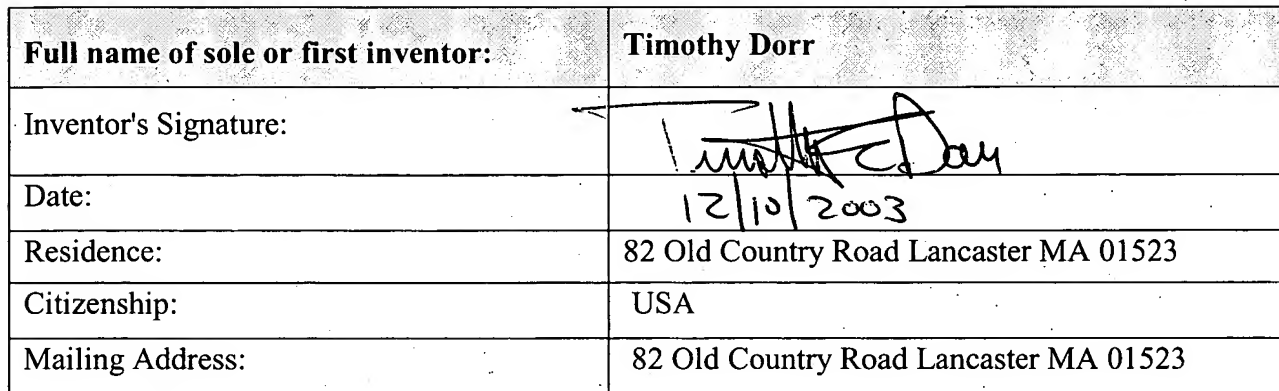 Full name of sole or first inventor: Timothy Dorr
Inventor's Signature: Timothy Dorr
Date: 12/10/2003
Residence: 82 Old Country Road Lancaster MA 01523
Citizenship: USA
Mailing Address: 82 Old Country Road Lancaster MA 01523